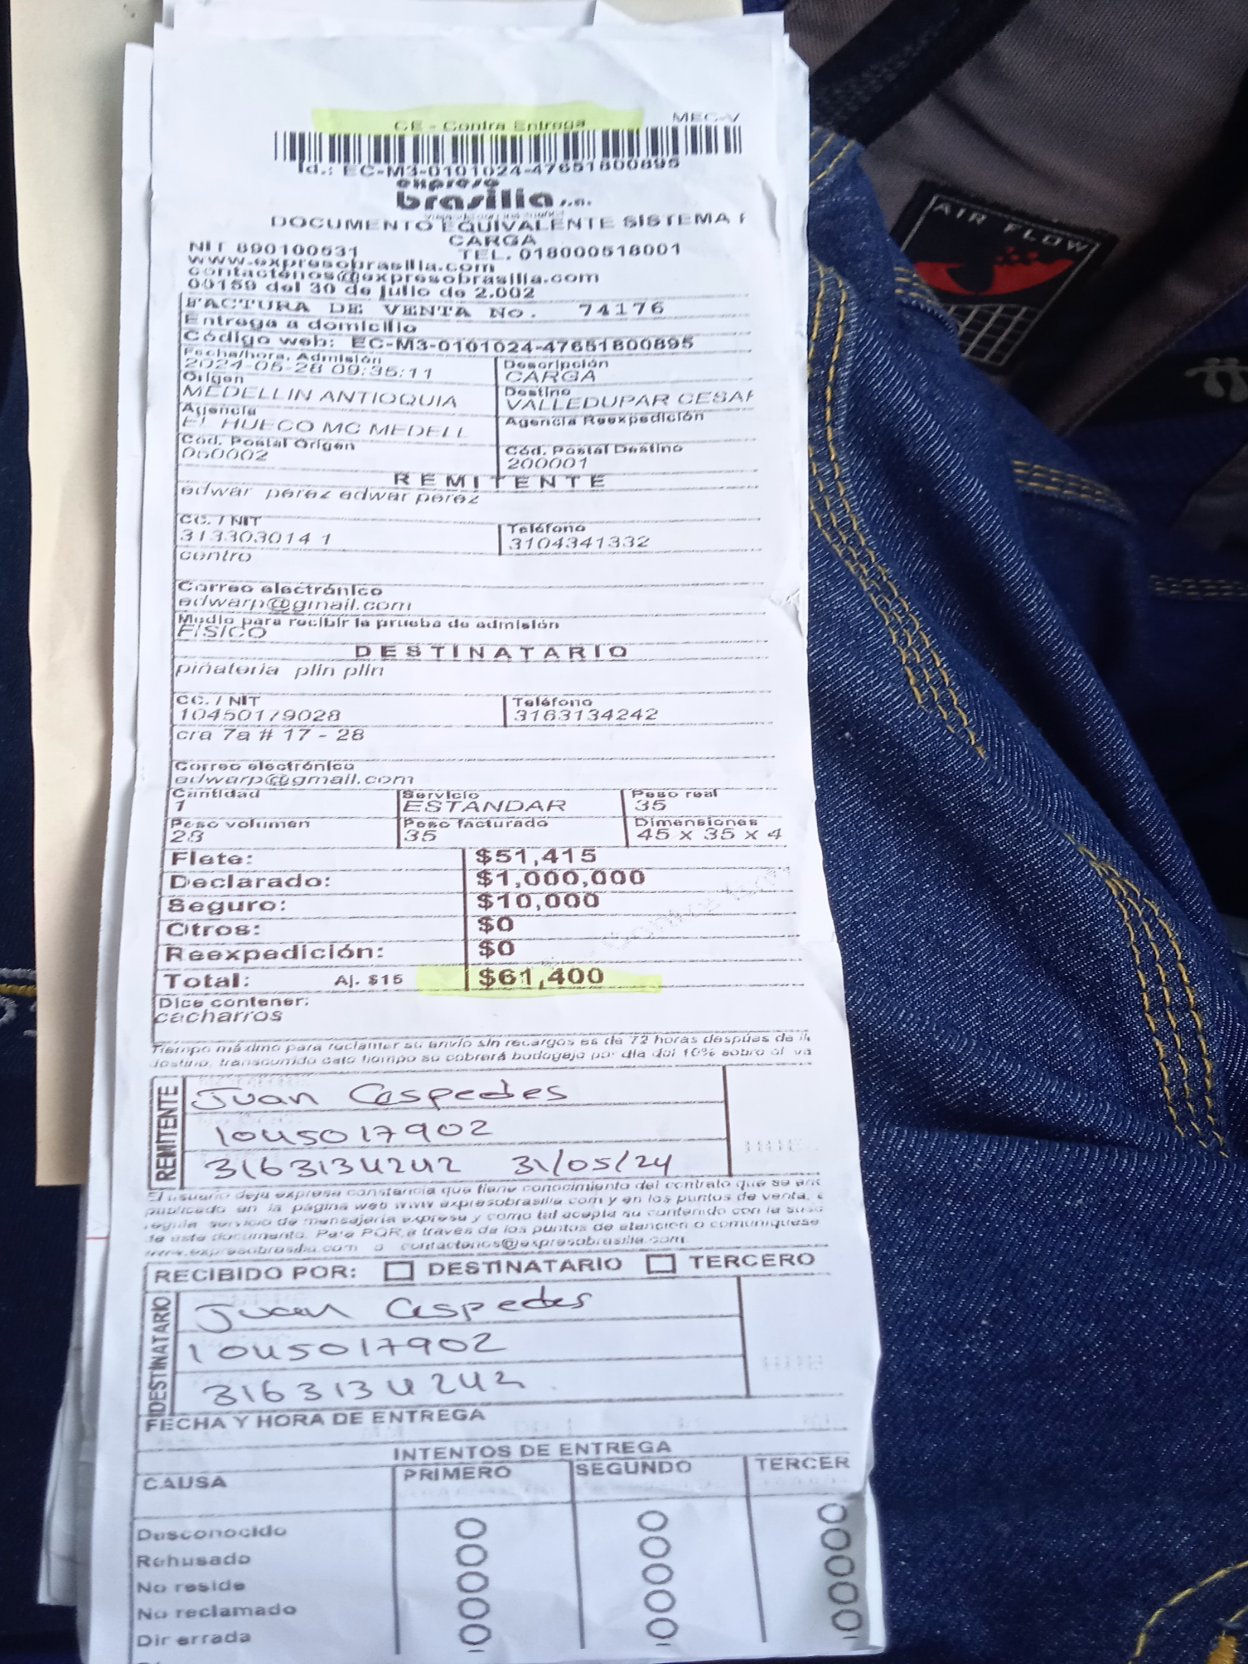 CE - Contra Entrega
MEC-V
Id.: EC-M3-0101024-47651800895
expreso
brasilia s.a.
DOCUMENTO EQUIVALENTE SISTEMA
CARGA
NIT 890100531 TEL. 018000518001
www.expresobrasilia.com
contactenos@expresobrasilia.com
00159 del 30 de julio de 2.002
FACTURA DE VENTA No. 74176
Entrega a domicilio
Código web: EC-M3-0101024-47651800895
Fecha/hora. Admisión Descripción
2024-05-28 09:35:11 CARGA
Origen Destino
MEDELLIN ANTIOQUIA VALLEDUPAR CESAR
Agencia Agencia Reexpedición
EL HUECO MC MEDELL
Cód. Postal Origen Cód. Postal Destino
050002 200001
REMITENTE
edwar perez edwar perez
CC. / NIT Teléfono
313303014 1 3104341332
centro
Correo electrónico
edwarp@gmail.com
Medio para recibir la prueba de admisión
FISICO
DESTINATARIO
piñateria plin plin
CC. / NIT Teléfono
10450179028 3163134242
cra 7a # 17 - 28
Correo electrónico
edwarp@gmail.com
Cantidad Servicio Peso real
1 ESTANDAR 35
Peso volumen Peso facturado Dimensiones
28 35 45 x 35 x 4
Flete: $51,415
Declarado: $1,000,000
Seguro: $10,000
Otros: $0
Reexpedición: $0
Total: Aj. $15 $61,400
Dice contener:
cacharros
Tiempo máximo para reclamar su envío sin recargos es de 72 horas después de
destino, transcurrido este tiempo se cobrará bodegaje por día del 10% sobre el va
REMITENTE
Juan Cespedes
1045017902
3163134242 31/05/24
El usuario deja expresa constancia que tiene conocimiento del contrato que se
publicado en la página web www expresobrasilia com y en los puntos de venta,
regula servicio de mensajería expresa y como tal acepta su contenido con la
de este documento. Para PQR a través de los puntos de atención o comuníquese
www.expresobrasilia.com o contactenos@expresobrasilia.com
RECIBIDO POR: DESTINATARIO TERCERO
DESTINATARIO
Juan Cespedes
1045017902
3163134242
FECHA Y HORA DE ENTREGA
INTENTOS DE ENTREGA
CAUSA PRIMERO SEGUNDO TERCER
Desconocido
Rehusado
No reside
No reclamado
Dir errada
AIR FLOW